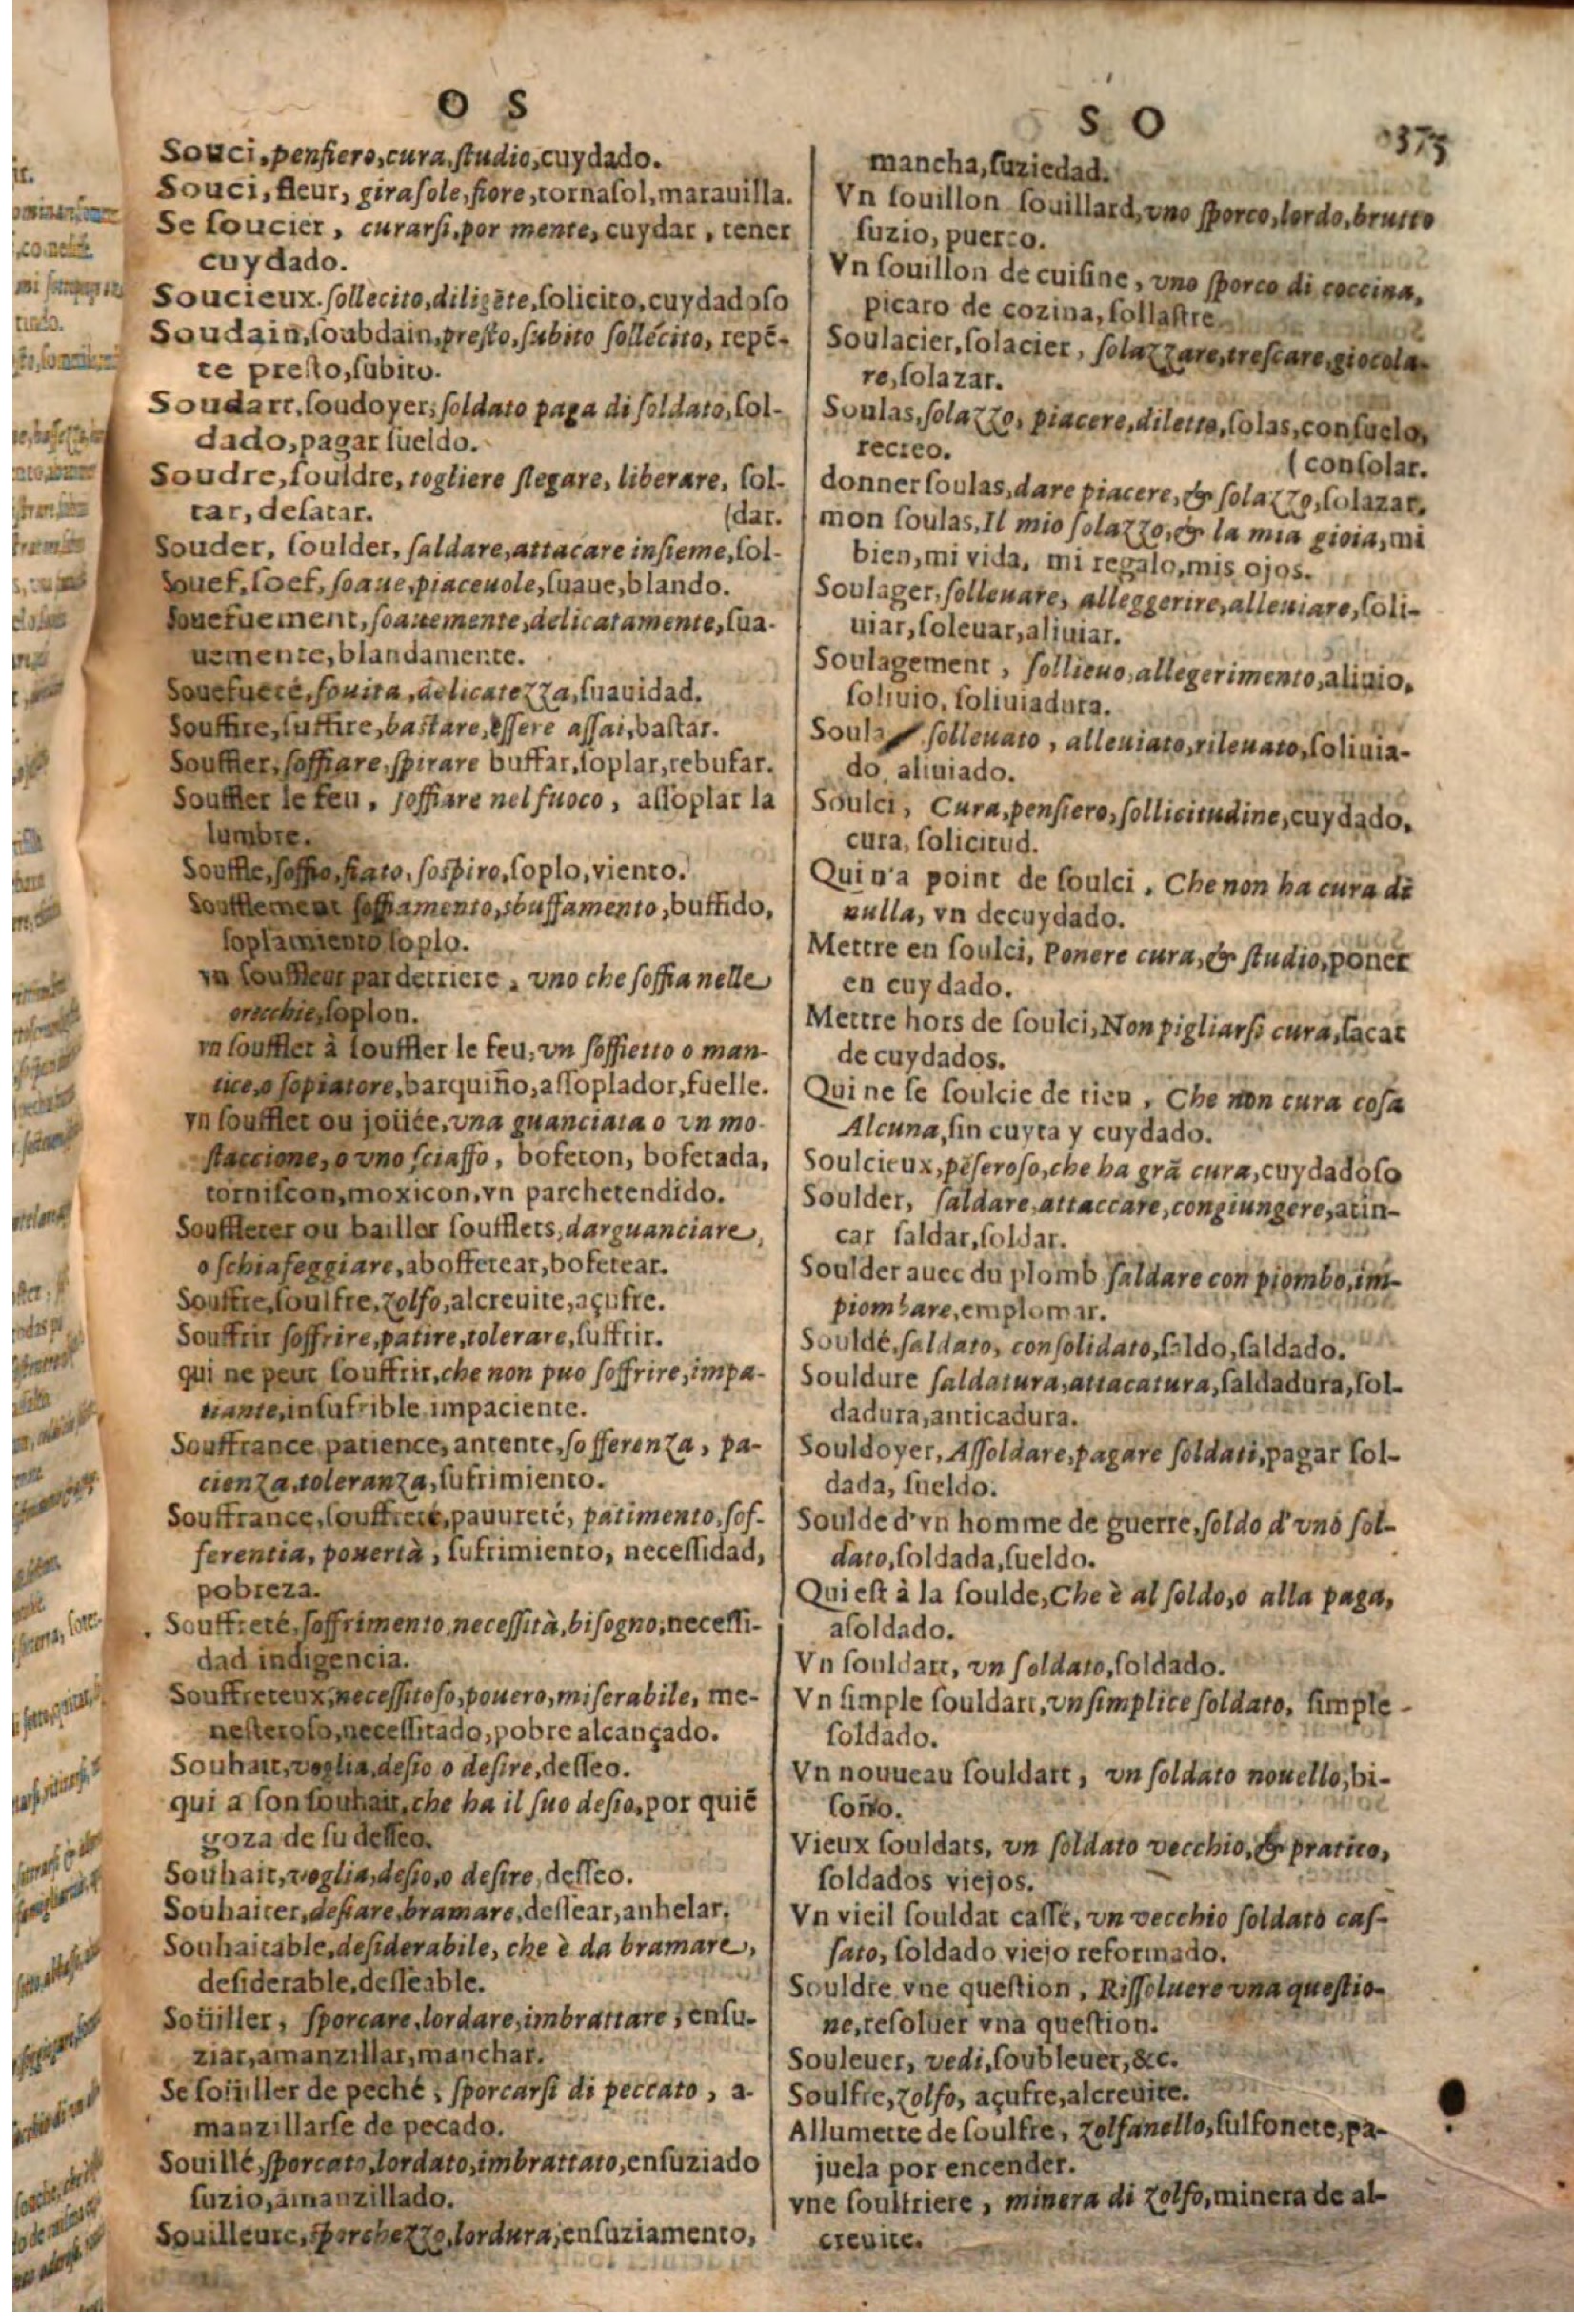 O S
Souci, penſiero, cura, ſtudio, cuydado.
Souci, fleur, giraſole, fiore, tornaſol, marauilla.
Se ſoucier, curarſi, por mente, cuydar, tener
cuydado.
Soucieux. ſollecito, diligẽte, ſolicito, cuydadoſo
Soudain, ſoubdain, preſto, ſubito ſollécito, repẽ-
te preſto, ſubito.
Soudart, ſoudoyer, ſoldato paga di ſoldato, ſol-
dado, pagar ſueldo.
Soudre, ſouldre, togliere ſlegare, liberare, ſol-
tar, deſatar. (dar.
Souder, ſoulder, ſaldare, attacare inſieme, ſol-
Souef, ſoef, ſoaue, piaceuole, ſuaue, blando.
Souefuement, ſoauemente, delicatamente, ſua-
uemente, blandamente.
Souefueté, ſouita, delicatezza, ſuauidad.
Souffire, ſuffire, baſtare, eſſere aſſai, baſtar.
Souffler, ſoffiare, ſpirare buffar, ſoplar, rebufar.
Souffler le feu, ſoffiare nel fuoco, aſſoplar la
lumbre.
Souffle, ſoffio, fiato, ſoſpiro, ſoplo, viento.
Soufflement ſoffiamento, sbuffamento, buffido,
ſoplamiento ſoplo.
vn ſouffleur par derriere, vno che ſoffia nelle
orecchie, ſoplon.
vn ſoufflet à ſouffler le feu, vn ſoffietto o man-
tice, o ſopiatore, barquiño, aſſoplador, fuelle.
vn ſoufflet ou joüée, vna guanciata o vn mo-
ſtaccione, o vno ſciaffo, bofeton, bofetada,
torniſcon, moxicon, vn parchetendido.
Souffleter ou bailler ſoufflets, darguanciare,
o ſchiafeggiare, aboffetear, bofetear.
Souffre, ſoulfre, zolfo, alcreuite, açufre.
Souffrir ſoffrire, patire, tolerare, ſuffrir.
qui ne peut ſouffrir, che non puo ſoffrire, impa-
tiante, inſufrible impaciente.
Souffrance patience, antente, ſofferenza, pa-
cienza, toleranza, ſufrimiento.
Souffrance, ſouffreté, pauureté, patimento, ſof-
ferentia, pouertà, ſufrimiento, neceſſidad,
pobreza.
Souffreté, ſoffrimento neceſſità, biſogno, neceſſi-
dad indigencia.
Souffreteux, neceſſitoſo, pouero, miſerabile, me-
neſteroſo, neceſſitado, pobre alcançado.
Souhait, voglia, deſio o deſire, deſſeo.
qui a ſon ſouhait, che ha il ſuo deſio, por quiẽ
goza de ſu deſſeo.
Souhait, voglia, deſio, o deſire, deſſeo.
Souhaiter, deſiare, bramare, deſſear, anhelar.
Souhaitable, deſiderabile, che è da bramare,
deſiderable, deſſeable.
Soüiller, ſporcare, lordare, imbrattare, enſu-
ziar, amanzillar, manchar.
Se ſoüiller de peché, ſporcarſi di peccato, a-
manzillarſe de pecado.
Souillé, ſporcato, lordato, imbrattato, enſuziado
ſuzio, amanzillado.
Souilleure, ſporchezzo, lordura, enſuziamento,
S O 375
mancha, ſuziedad.
Vn ſouillon ſouillard, vno ſporco, lordo, brutto
ſuzio, puerco.
Vn ſouillon de cuiſine, vno ſporco di coccina,
picaro de cozina, ſollaſtre.
Soulacier, ſolacier, ſolazzare, treſcare, giocola-
re, ſolazar.
Soulas, ſolazzo, piacere, diletto, ſolas, conſuelo,
recreo. (conſolar.
donner ſoulas, dare piacere, & ſolazzo, ſolazar,
mon ſoulas, Il mio ſolazzo, & la mia gioia, mi
bien, mi vida, mi regalo, mis ojos.
Soulager, ſolleuare, alleggerire, alleuiare, ſoli-
uiar, ſoleuar, aliuiar.
Soulagement, ſollieuo, allegerimento, aliuio,
ſoliuio, ſoliuiadura.
Soula ſolleuato, alleuiato, rileuato, ſoliuia-
do, aliuiado.
Soulci, Cura, penſiero, ſollicitudine, cuydado,
cura, ſolicitud.
Qui n'a point de ſoulci, Che non ha cura di
nulla, vn decuydado.
Mettre en ſoulci, Ponere cura, & ſtudio, poner
en cuydado.
Mettre hors de ſoulci, Non pigliarſi cura, ſacar
de cuydados.
Qui ne ſe ſoulcie de rien, Che non cura coſa
Alcuna, ſin cuyta y cuydado.
Soulcieux, pẽſeroſo, che ha grã cura, cuydadoſo
Soulder, ſaldare, attaccare, congiungere, atin-
car ſaldar, ſoldar.
Soulder auec du plomb ſaldare con piombo, im-
piombare, emplomar.
Souldé, ſaldato, conſolidato, ſaldo, ſaldado.
Souldure ſaldatura, attacatura, ſaldadura, ſol-
dadura, anticadura.
Souldoyer, Aſſoldare, pagare ſoldati, pagar ſol-
dada, ſueldo.
Soulde d'vn homme de guerre, ſoldo d'vno ſol-
dato, ſoldada, ſueldo.
Qui eſt à la ſoulde, Che è al ſoldo, o alla paga,
aſoldado.
Vn ſouldart, vn ſoldato, ſoldado.
Vn ſimple ſouldart, vn ſimplice ſoldato, ſimple
ſoldado.
Vn nouueau ſouldart, vn ſoldato nouello, bi-
ſoño.
Vieux ſouldats, vn ſoldato vecchio, & pratico,
ſoldados viejos.
Vn vieil ſouldat caſſé, vn vecchio ſoldato caſ-
ſato, ſoldado viejo reformado.
Souldre vne queſtion, Riſſoluere vna queſtio-
ne, reſoluer vna queſtion.
Souleuer, vedi, ſoubleuer, &c.
Soulfre, zolfo, açufre, alcreuite.
Allumette de ſoulfre, zolfanello, ſulfonete, pa-
juela por encender.
vne ſoulfriere, minera di zolfo, minera de al-
creuite.